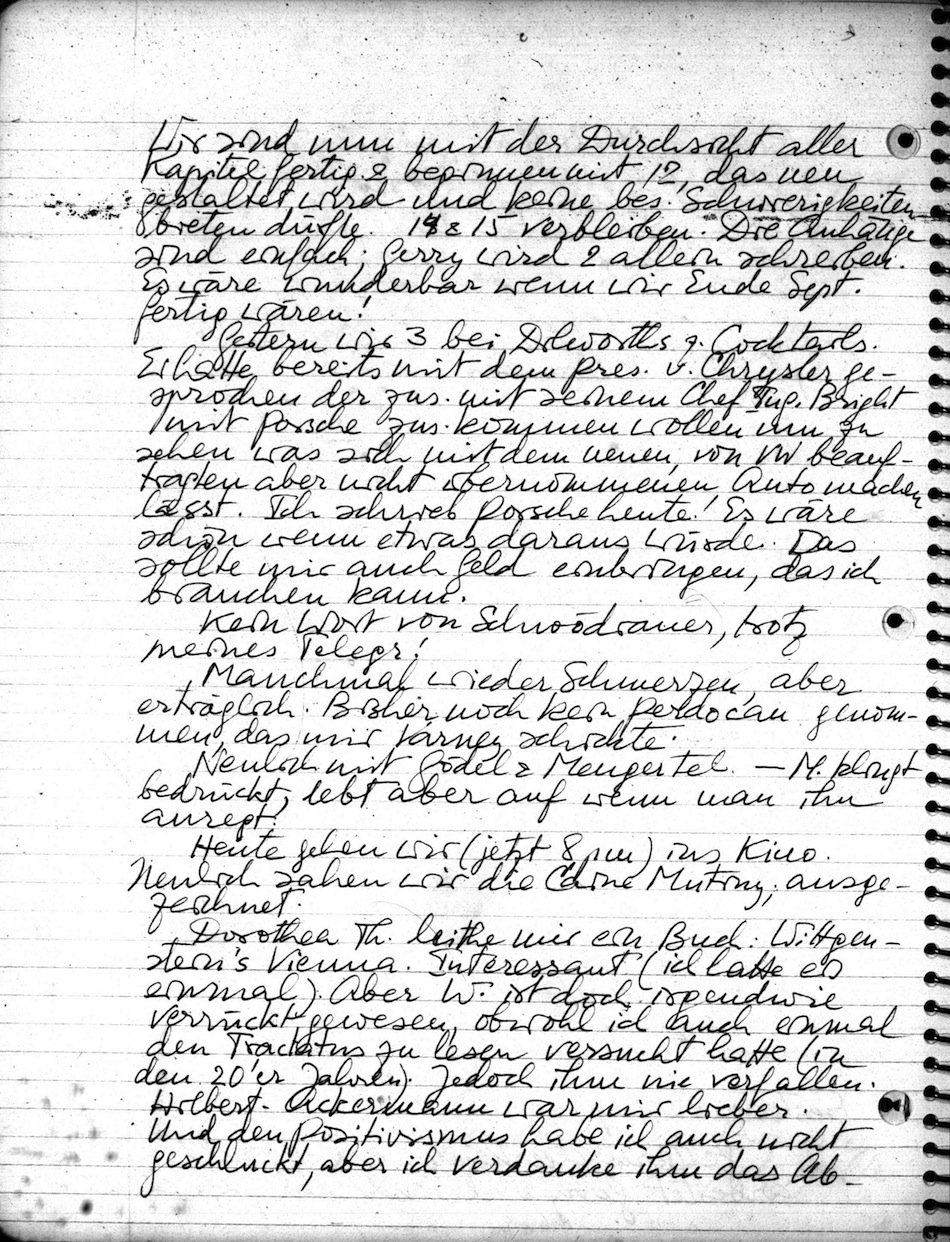 Wir sind nun mit der Durchsicht aller
Kapitel fertig & beginnen mit 12, das neu
gestaltet wird und keine bes. Schwierigkeiten
bieten dürfte. & 15 verbleiben. Die Anhänge
sind einfach; Gerry wird 2 allein schreiben.
Es wäre wunderbar wenn wir Ende Sept.
fertig wären!
Gestern wir 3 bei Dilworths z. Cocktails.
Er hatte bereits mit dem Pres. v. Chrysler ge-
sprochen der zus. mit seinem Chef Ing. Bright
mit Porsche zus. kommen wollen um zu
sehen was sich mit dem neuen, von VW beauf-
tragten aber nicht übernommenen Auto machen
lässt. Ich schrieb Porsche heute! Es wäre
schön wenn etwas daraus würde. Das
sollte mir auch Geld einbringen, das ich
brauchen kann.
Kein Wort von Schnödrauer, trotz
meines Telegr!
Manchmal wieder Schmerzen, aber
erträglich. Bisher noch kein Percodan genom-
men, das mir Varney schickte.
Neulich mit Gödel & Menger tel. — M. klingt
bedrückt, lebt aber auf wenn man ihn
anregt.
Heute gehen wir (jetzt 8 pm) ins Kino.
Neulich sahen wir die Caine Mutiny; ausge-
zeichnet.
Dorothea Th. leihte mir ein Buch: Wittgen-
stein's Vienna. Interessant (ich hatte es
einmal). Aber W. ist doch irgendwie
verrückt gewesen, obwohl ich auch einmal
den Tractatus zu lesen versucht hatte (in
den 20'er Jahren). Jedoch ihm nie verfallen.
Hilbert-Ackermann war mir lieber.
Und den Positivismus habe ich auch nicht
geschluckt, aber ich verdanke ihm das Ab-